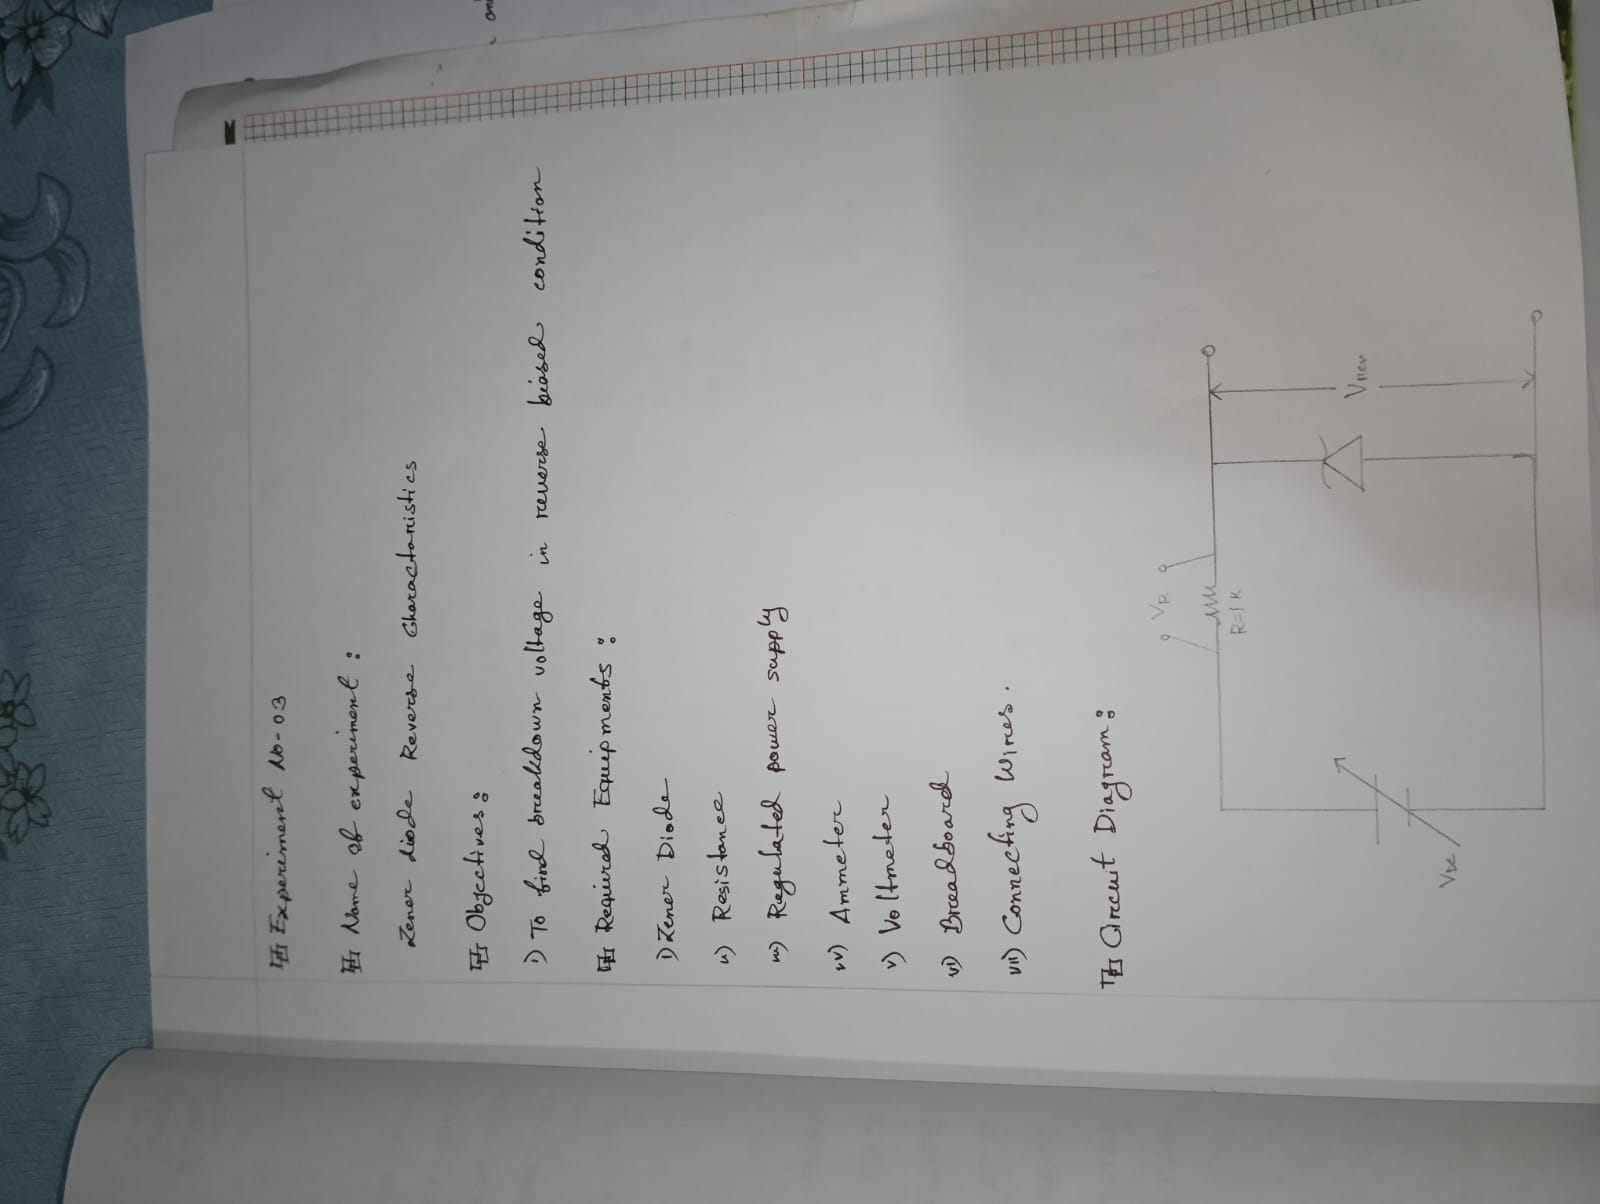 Experiment No-03
Name of experiment :
Zener diode Reverse Charactaristics
Objectives :
i) To find breakdown voltage in reverse biased condition
Required Equipments :
i) Zener Diode
ii) Resistance
iii) Regulated power supply
iv) Ammeter
v) Voltmeter
vi) Breadboard
vii) Connecting Wires.
Circuit Diagram :
VR
R=1K
Vrev
VDC